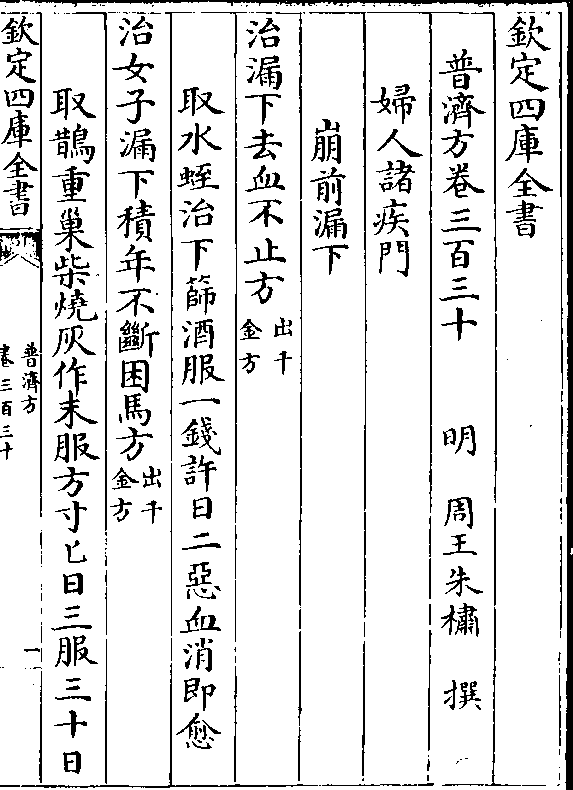 欽定四庫全書
普濟方卷三百三十　明　周王朱橚　撰
婦人諸疾門
崩前漏下
治漏下去血不止方出千金方
取水蛭治下篩酒服一錢許日二惡血消即愈
治女子漏下積年不斷困馬方出千金方
取鵲重巢柴燒灰作末服方寸匕日三服三十日
欽定四庫全書
普濟方
卷三百三十
一